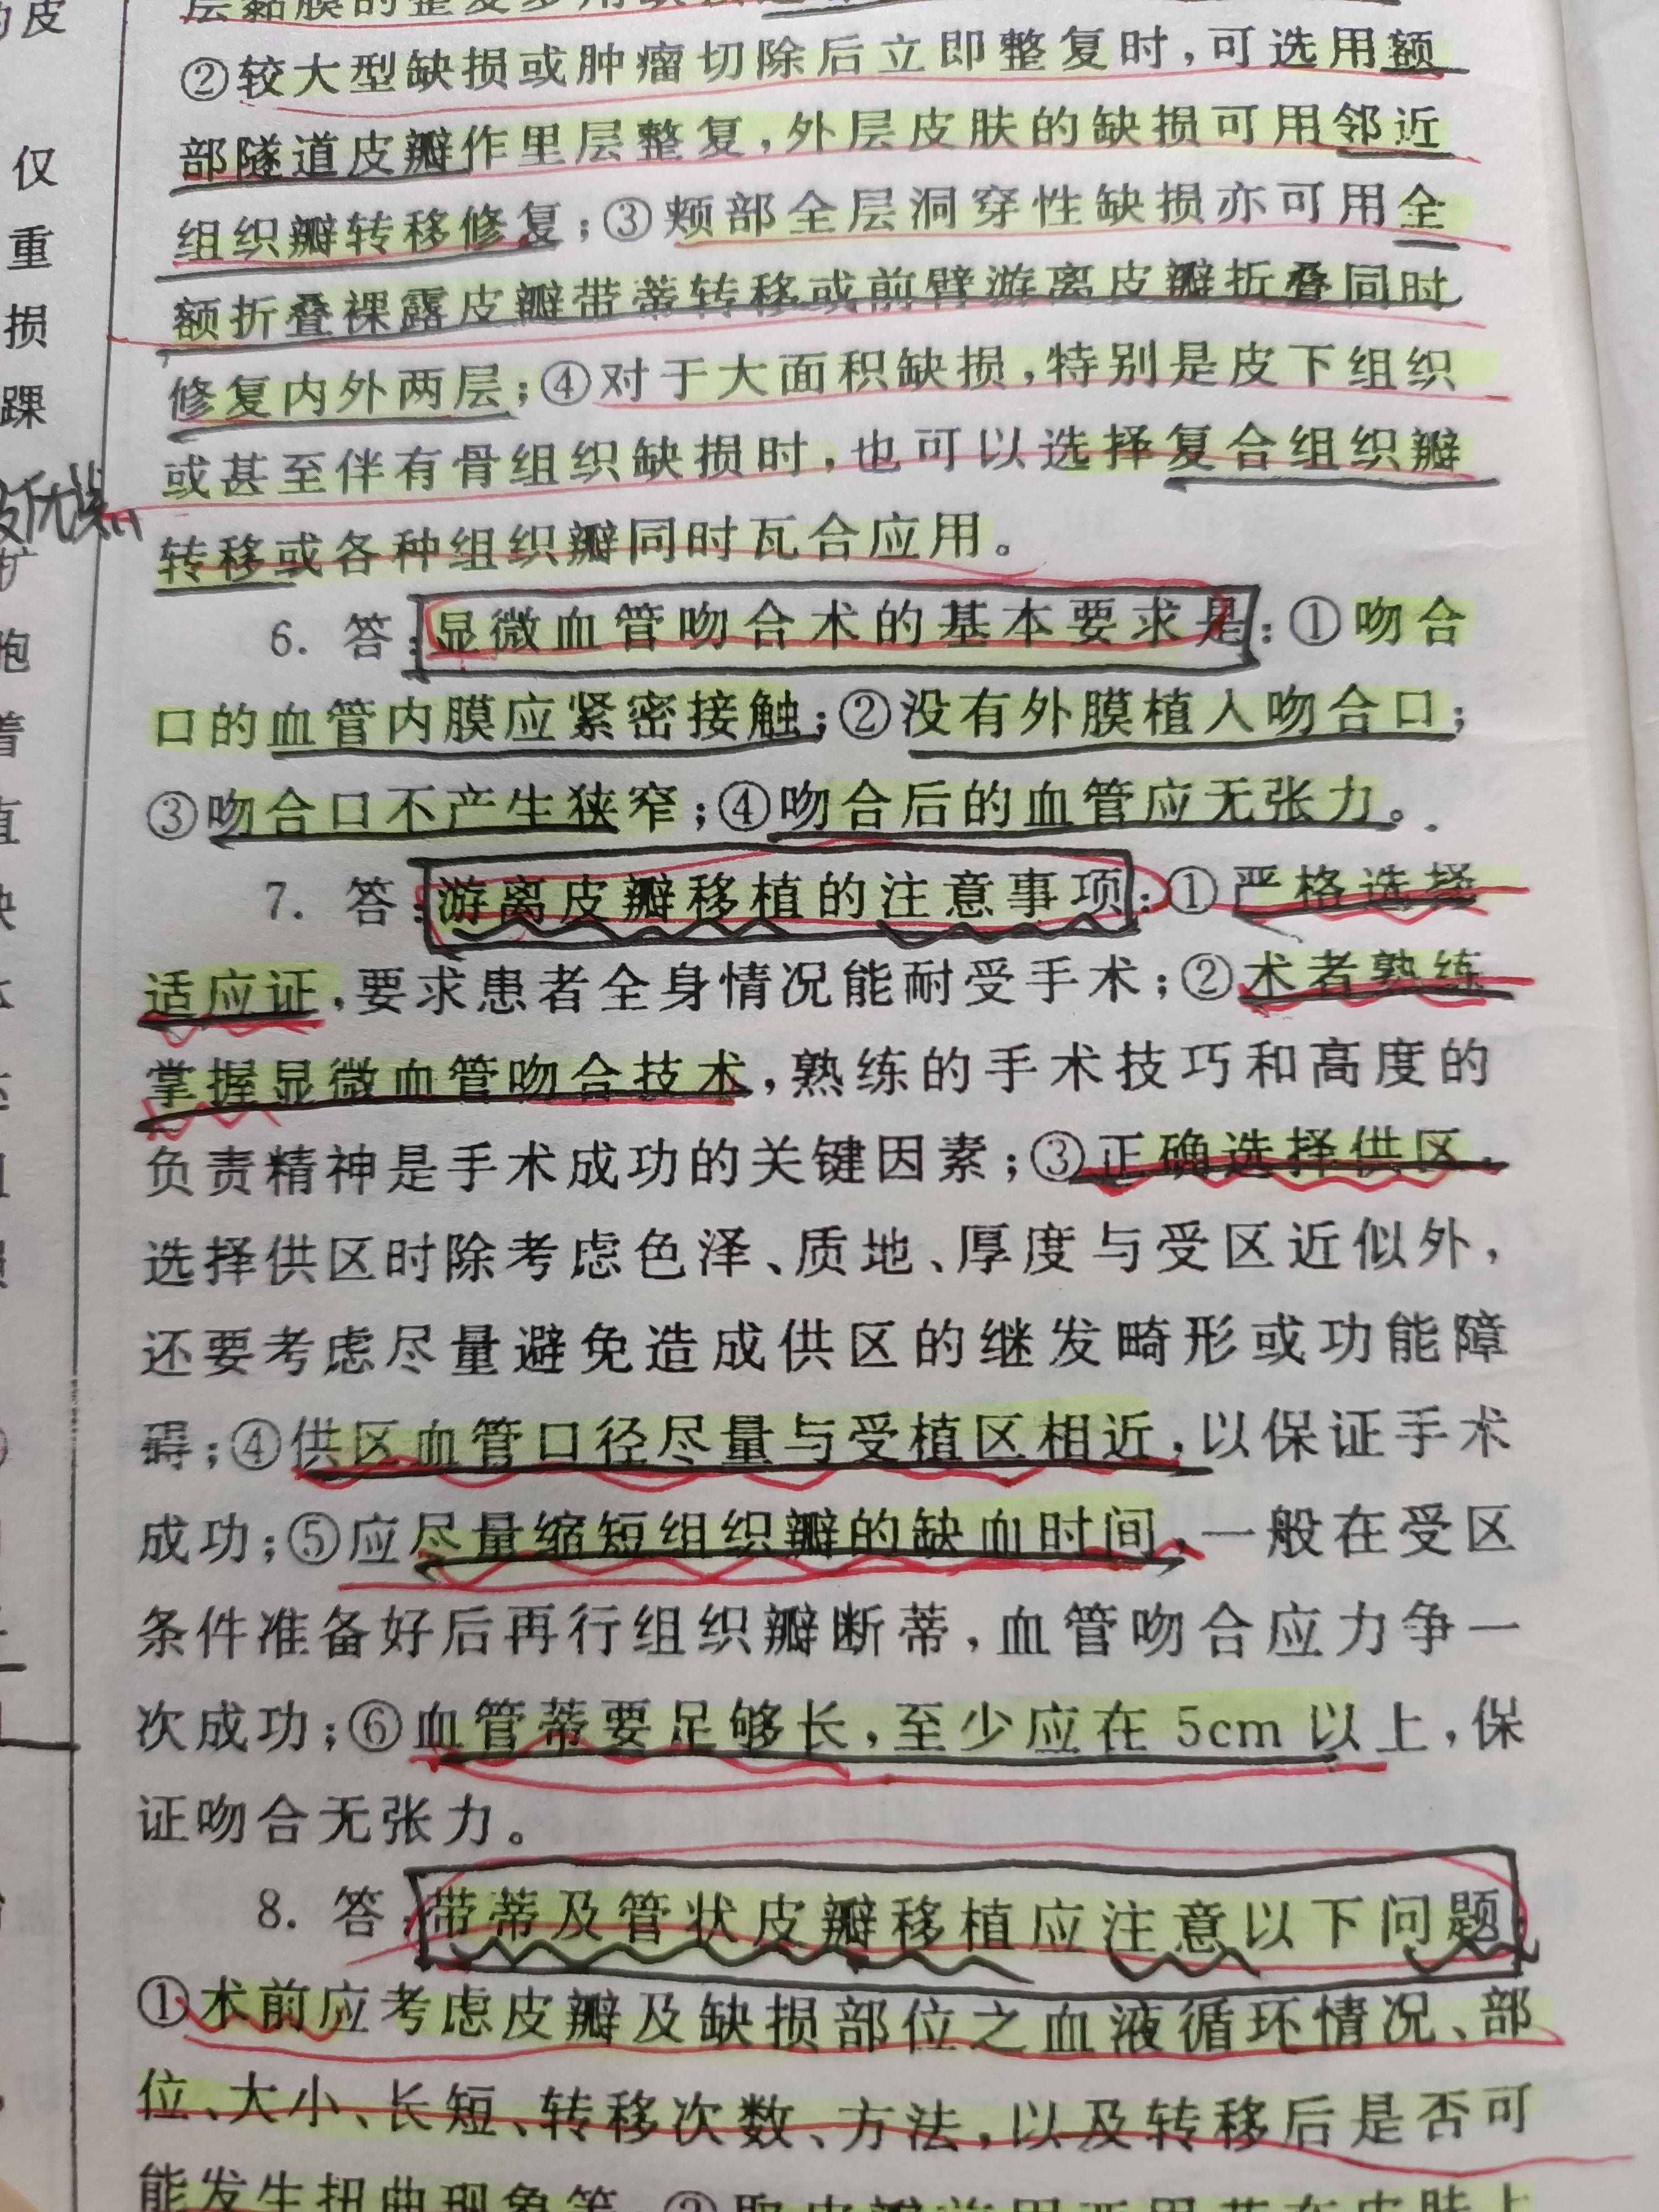 ②较大型缺损或肿瘤切除后立即整复时,可选用额
部隧道皮瓣作里层整复,外层皮肤的缺损可用邻近
组织瓣转移修复;③颊部全层洞穿性缺损亦可用全
额折叠裸露皮瓣带蒂转移或前臂游离皮瓣折叠同时
修复内外两层;④对于大面积缺损,特别是皮下组织
或甚至伴有骨组织缺损时,也可以选择复合组织瓣
转移或各种组织瓣同时瓦合应用。
6. 答:显微血管吻合术的基本要求是:①吻合
口的血管内膜应紧密接触;②没有外膜植入吻合口;
③吻合口不产生狭窄;④吻合后的血管应无张力。
7. 答:游离皮瓣移植的注意事项:①严格选择
适应证,要求患者全身情况能耐受手术;②术者熟练
掌握显微血管吻合技术,熟练的手术技巧和高度的
负责精神是手术成功的关键因素;③正确选择供区,
选择供区时除考虑色泽、质地、厚度与受区近似外,
还要考虑尽量避免造成供区的继发畸形或功能障
碍;④供区血管口径尽量与受植区相近,以保证手术
成功;⑤应尽量缩短组织瓣的缺血时间,一般在受区
条件准备好后再行组织瓣断蒂,血管吻合应力争一
次成功;⑥血管蒂要足够长,至少应在 5cm 以上,保
证吻合无张力。
8. 答:带蒂及管状皮瓣移植应注意以下问题:
①术前应考虑皮瓣及缺损部位之血液循环情况、部
位、大小、长短、转移次数、方法,以及转移后是否可
能发生扭曲现象等
皮
仅
重
损
踝